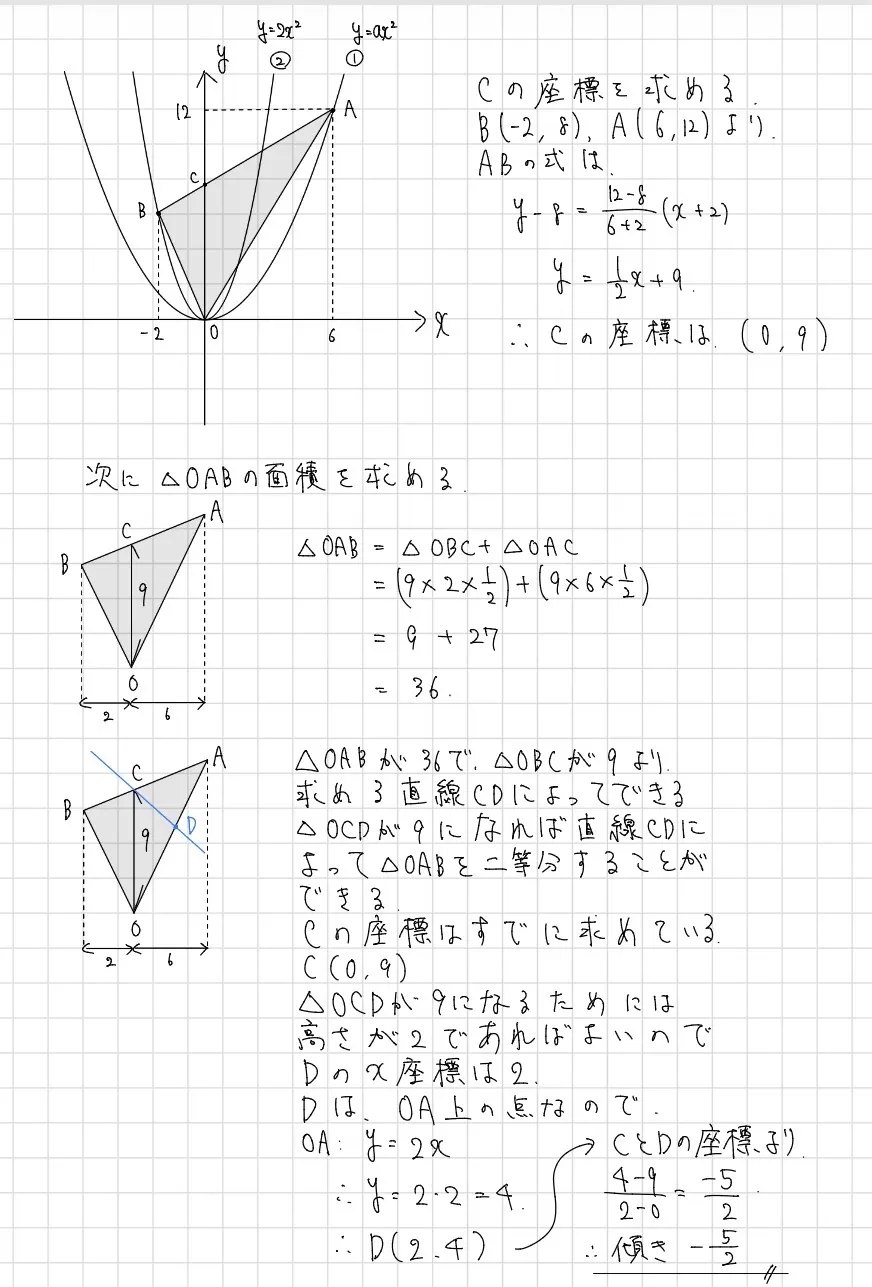 y=2x² y=ax²
② ①
y
12 A
C
B
-2 O 6 x
Cの座標を求める.
B(-2, 8), A(6, 12)より.
ABの式は.
y-8 = \frac{12-8}{6+2}(x+2)
y = \frac{1}{2}x+9.
∴ Cの座標は. (0, 9)
次に △OABの面積を求める.
A
C
B
9
O
2 6
△OAB = △OBC+△OAC
= (9×2×\frac{1}{2})+(9×6×\frac{1}{2})
= 9 + 27
= 36.
A
C
B
D
9
O
2 6
△OABが36で. △OBCが9より.
求める直線CDによってできる
△OCDが9になれば直線CDに
よって△OABを二等分することが
できる.
Cの座標はすでに求めている.
C(0, 9)
△OCDが9になるためには
高さが2であればよいので
Dのx座標は2.
Dは、OA上の点なので.
OA: y=2x
∴ y=2・2=4.
∴ D(2.4)
CとDの座標より.
\frac{4-9}{2-0} = \frac{-5}{2}.
∴ 傾き -\frac{5}{2}